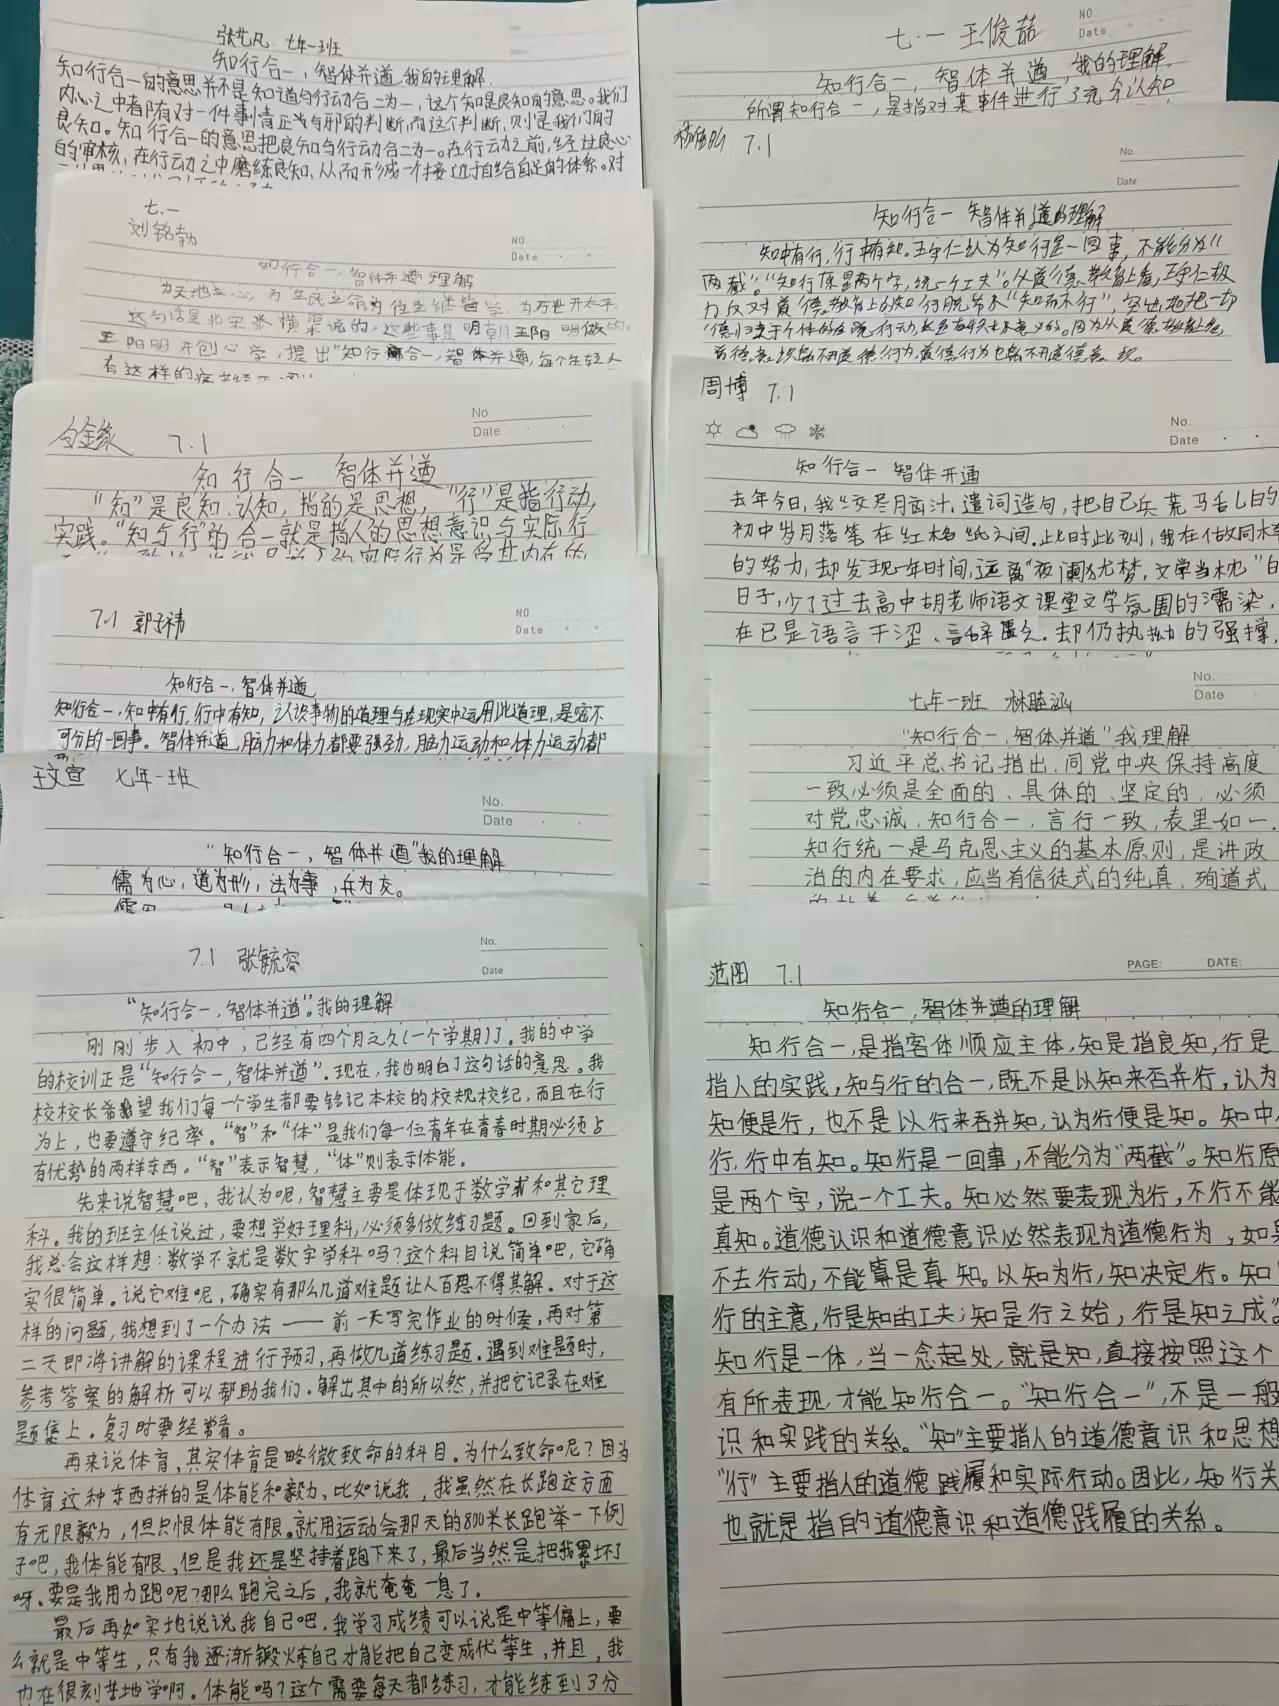 张艺凡 七年一班
知行合一,智体并遒 我的理解
知行合一的意思并不是知道与行动合二为一,这个知是良知的意思。我们
内心之中都有对一件事情正或与邪的判断,而这个判断,则是我们的
良知。知行合一的意思把良知与行动合二为一。在行动之前,经过良心
的审核,在行动之中磨练良知,从而形成一个接近于自给自足的体系。对
七.一
刘铭勃
NO.
Date
知行合一,智体并遒理解
为天地立心,为生民立命为往圣继绝学,为万世开太平
这句话是北宋张横渠说的,这些事是明朝王阳明做的。
王阳明开创心学,提出"知行合一,智体并遒,每个年轻人
有这样的
白金缘 7.1
No
Date
知行合一 智体并遒
"知"是良知、认知,指的是思想,"行"是指行动,
实践。"知与行"的合一就是指人的思想意识与实际行
7.1 郭子祎
NO
Date
知行合一,智体并遒
知行合一,知中有行,行中有知,认识事物的道理与在现实中运用此道理,是密不
可分的一回事。智体并遒,脑力和体力都要强劲,脑力运动和体力运动都
王文宣 七年一班
No.
Date
"知行合一,智体并遒"我的理解
儒为心,道为形,法为事,兵为交。
7.1 张毓容
No.
Date
"知行合一,智体并遒"。我的理解
刚刚步入初中,已经有四个月之久(一个学期)了。我的中学
的校训正是"知行合一,智体并遒"。现在,我也明白了这句话的意思。我
校校长希望我们每一个学生都要铭记本校的校规校纪,而且在行
为上,也要遵守纪率。"智"和"体"是我们每一位青年在青春时期必须占
有优势的两样东西。"智"表示智慧,"体"则表示体能。
先来说智慧吧,我认为呢,智慧主要是体现于数学和其它理
科。我的班主任说过,要想学好理科,必须多做练习题。回到家后,
我总会这样想:数学不就是数字学科吗?这个科目说简单吧,它确
实很简单。说它难呢,确实有那么几道难题让人百思不得其解。对于这
样的问题,我想到了一个办法——前一天写完作业的时候,再对第
二天即将讲解的课程进行预习,再做几道练习题。遇到难题时,
参考答案的解析可以帮助我们。解出其中的所以然,并把它记录在难
题集上。复习时要经常看。
再来说体育,其实体育是略微致命的科目。为什么致命呢?因为
体育这种东西拼的是体能和毅力,比如说我,我虽然在长跑这方面
有无限毅力,但只恨体能有限。就用运动会那天的800米长跑举一下例
子吧,我体能有限,但是我还是坚持着跑下来了,最后当然是把我累坏了
呀。要是我用力跑呢?那么跑完之后,我就奄奄一息了。
最后再如实地说说我自己吧,我学习成绩可以说是中等偏上,要
么就是中等生,只有我逐渐锻炼自己才能把自己变成优等生,并且,我
也在很刻苦地学啊。体能吗?这个需要每天都练习,才能练到3分
七.一 王俊喆
NO.
Date
知行合一,智体并遒,我的理解
所谓知行合一,是指对某事件进行了充分认知
7.1
No.
Date
知行合一 智体并遒的理解
知中有行,行中有知。王守仁认为知行是一回事,不能分为
"两截"。"知行原是两个字,说一个工夫"。从道德教育上看,王守仁极
力反对道德教育上的知行脱节及"知而不行",突出地把一切
道德归之于个体的自觉行动,这是有积极意义的。因为从道德教育上看
道德意识离不开道德行为,道德行为也离不开道德意识。
周博 7.1
No.
Date
知行合一 智体并遒
去年今日,我绞尽脑汁,遣词造句,把自己兵荒马乱的
初中岁月落笔在红格纸之间。此时此刻,我在做同样
的努力,却发现一年时间,远离"夜阑犹梦,文学当枕"的
日子,少了过去高中胡老师语文课堂文学氛围的濡染,
在已是语言干涩、言辞匮乏。却仍执拗的强撑,
No.
Date
七年一班 林睦涵
"知行合一,智体并遒"我理解
习近平总书记指出,同党中央保持高度
一致必须是全面的、具体的、坚定的,必须
对党忠诚,知行合一,言行一致,表里如一.
知行统一是马克思主义的基本原则,是讲政
治的内在要求,应当有信徒式的纯真、殉道式
范阳 7.1
PAGE: DATE:
知行合一,智体并遒的理解
知行合一,是指客体顺应主体,知是指良知,行是
指人的实践,知与行的合一,既不是以知来吞并行,认为
知便是行,也不是以行来吞并知,认为行便是知。知中
行,行中有知。知行是一回事,不能分为"两截"。知行原
是两个字,说一个工夫。知必然要表现为行,不行不能
真知。道德认识和道德意识必然表现为道德行为,如果
不去行动,不能算是真知。以知为行,知决定行。知
行的主意,行是知的工夫;知是行之始,行是知之成。
知行是一体,当一念起处,就是知,直接按照这个
有所表现,才能知行合一。"知行合一",不是一般
识和实践的关系。"知"主要指人的道德意识和思想
"行"主要指人的道德践履和实际行动。因此,知行关
也就是指的道德意识和道德践履的关系。